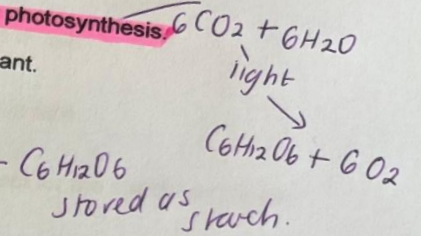 photosynthesis. 6CO2 + 6H2O
ant.
light
C6H12O6 + 6O2
- C6H12O6
stored as
starch.